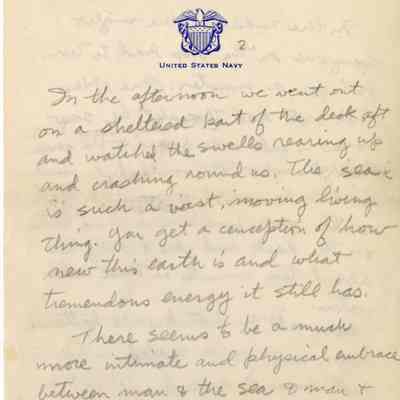 2
UNITED STATES NAVY
In the afternoon we went out
on a sheltered part of the deck aft
and watched the swells rearing up
and crashing round us. The sea
is such a vast, moving living
thing. You get a conception of how
new this earth is and what
tremendous energy it still has.
There seems to be a much
more intimate and physical embrace
between man & the sea & man &